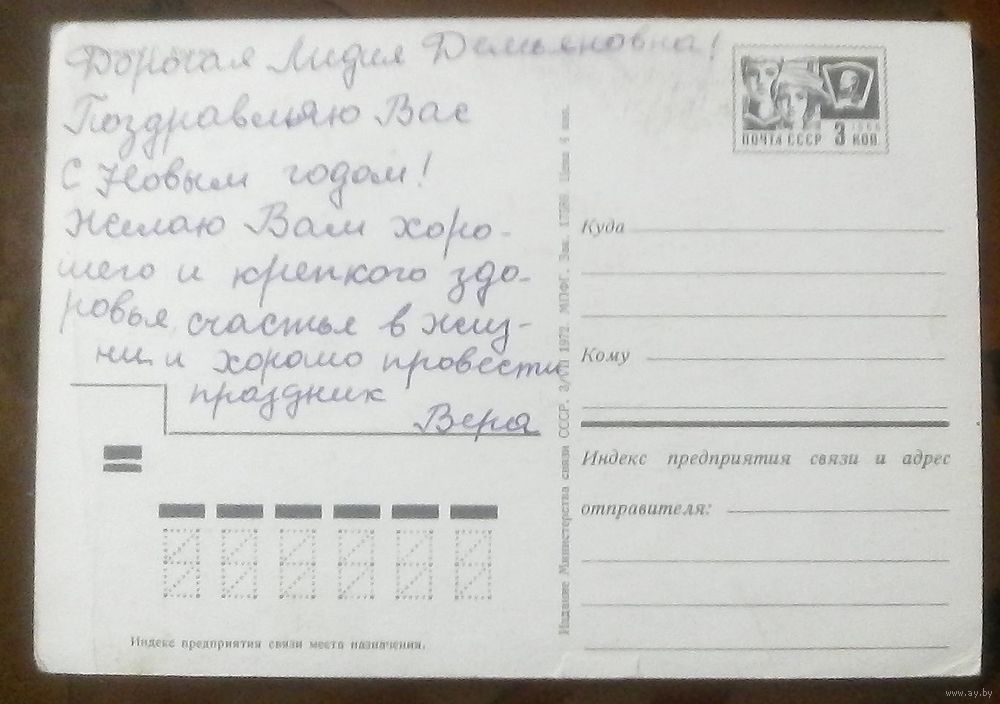 Дорогая Лидия Демьяновна!
Поздравляю Вас
с Новым годом!
Желаю Вам хоро-
шего и крепкого здо-
ровья, счастья в жиз-
ни и хорошо провести
праздник
Вера
ПОЧТА СССР 3 КОП.
1966
Куда
Кому
Индекс предприятия связи и адрес
отправителя:
Издание Министерства связи СССР. 1972. МПФГ. Зак. Цена 4 коп.
Индекс предприятия связи места назначения.
www.ay.by